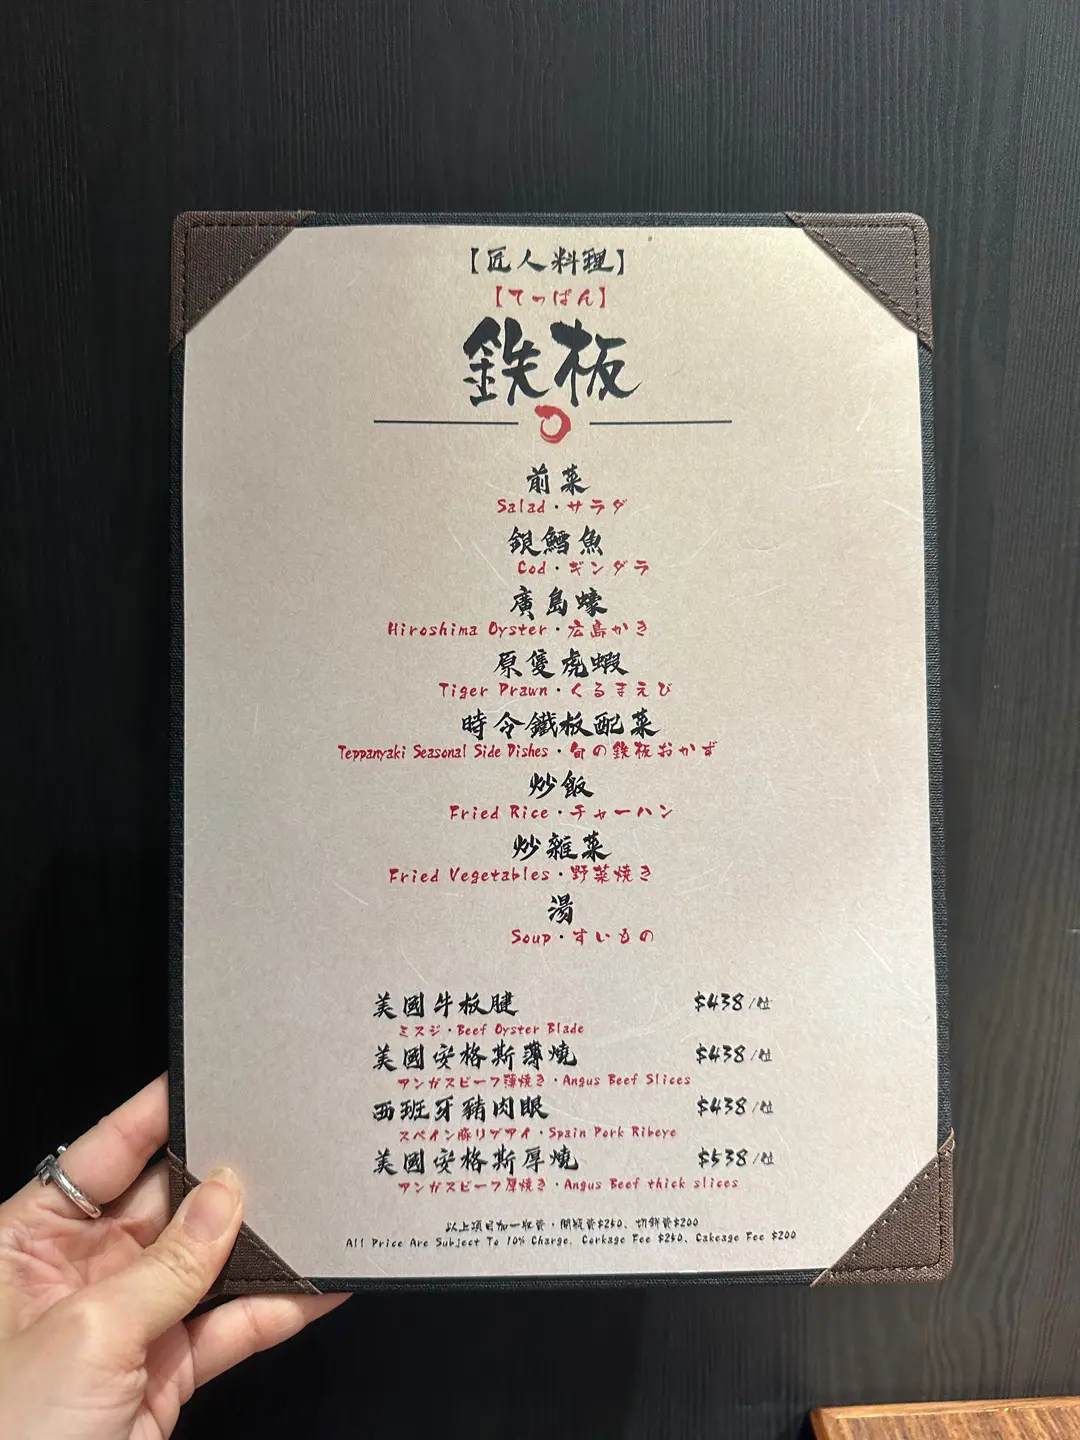 【匠人料理】
【てっぱん】
鉄板
前菜
Salad・サラダ
銀鱈魚
Cod・ギンダラ
廣島蠔
Hiroshima Oyster・広島かき
原隻虎蝦
Tiger Prawn・くるまえび
時令鐵板配菜
Teppanyaki Seasonal Side Dishes・旬の鉄板おかず
炒飯
Fried Rice・チャーハン
炒雜菜
Fried Vegetables・野菜焼き
湯
Soup・すいもの
美國牛板腱 $438/位
ミスジ・Beef Oyster Blade
美國安格斯薄燒 $438/位
アンガスビーフ薄焼き・Angus Beef Slices
西班牙豬肉眼 $438/位
スペイン豚リブアイ・Spain Pork Ribeye
美國安格斯厚燒 $538/位
アンガスビーフ厚焼き・Angus Beef thick slices
以上項目加一收費・開瓶費$250、切餅費$200
All Price Are Subject To 10% Charge. Corkage Fee $250, Cakeage Fee $200